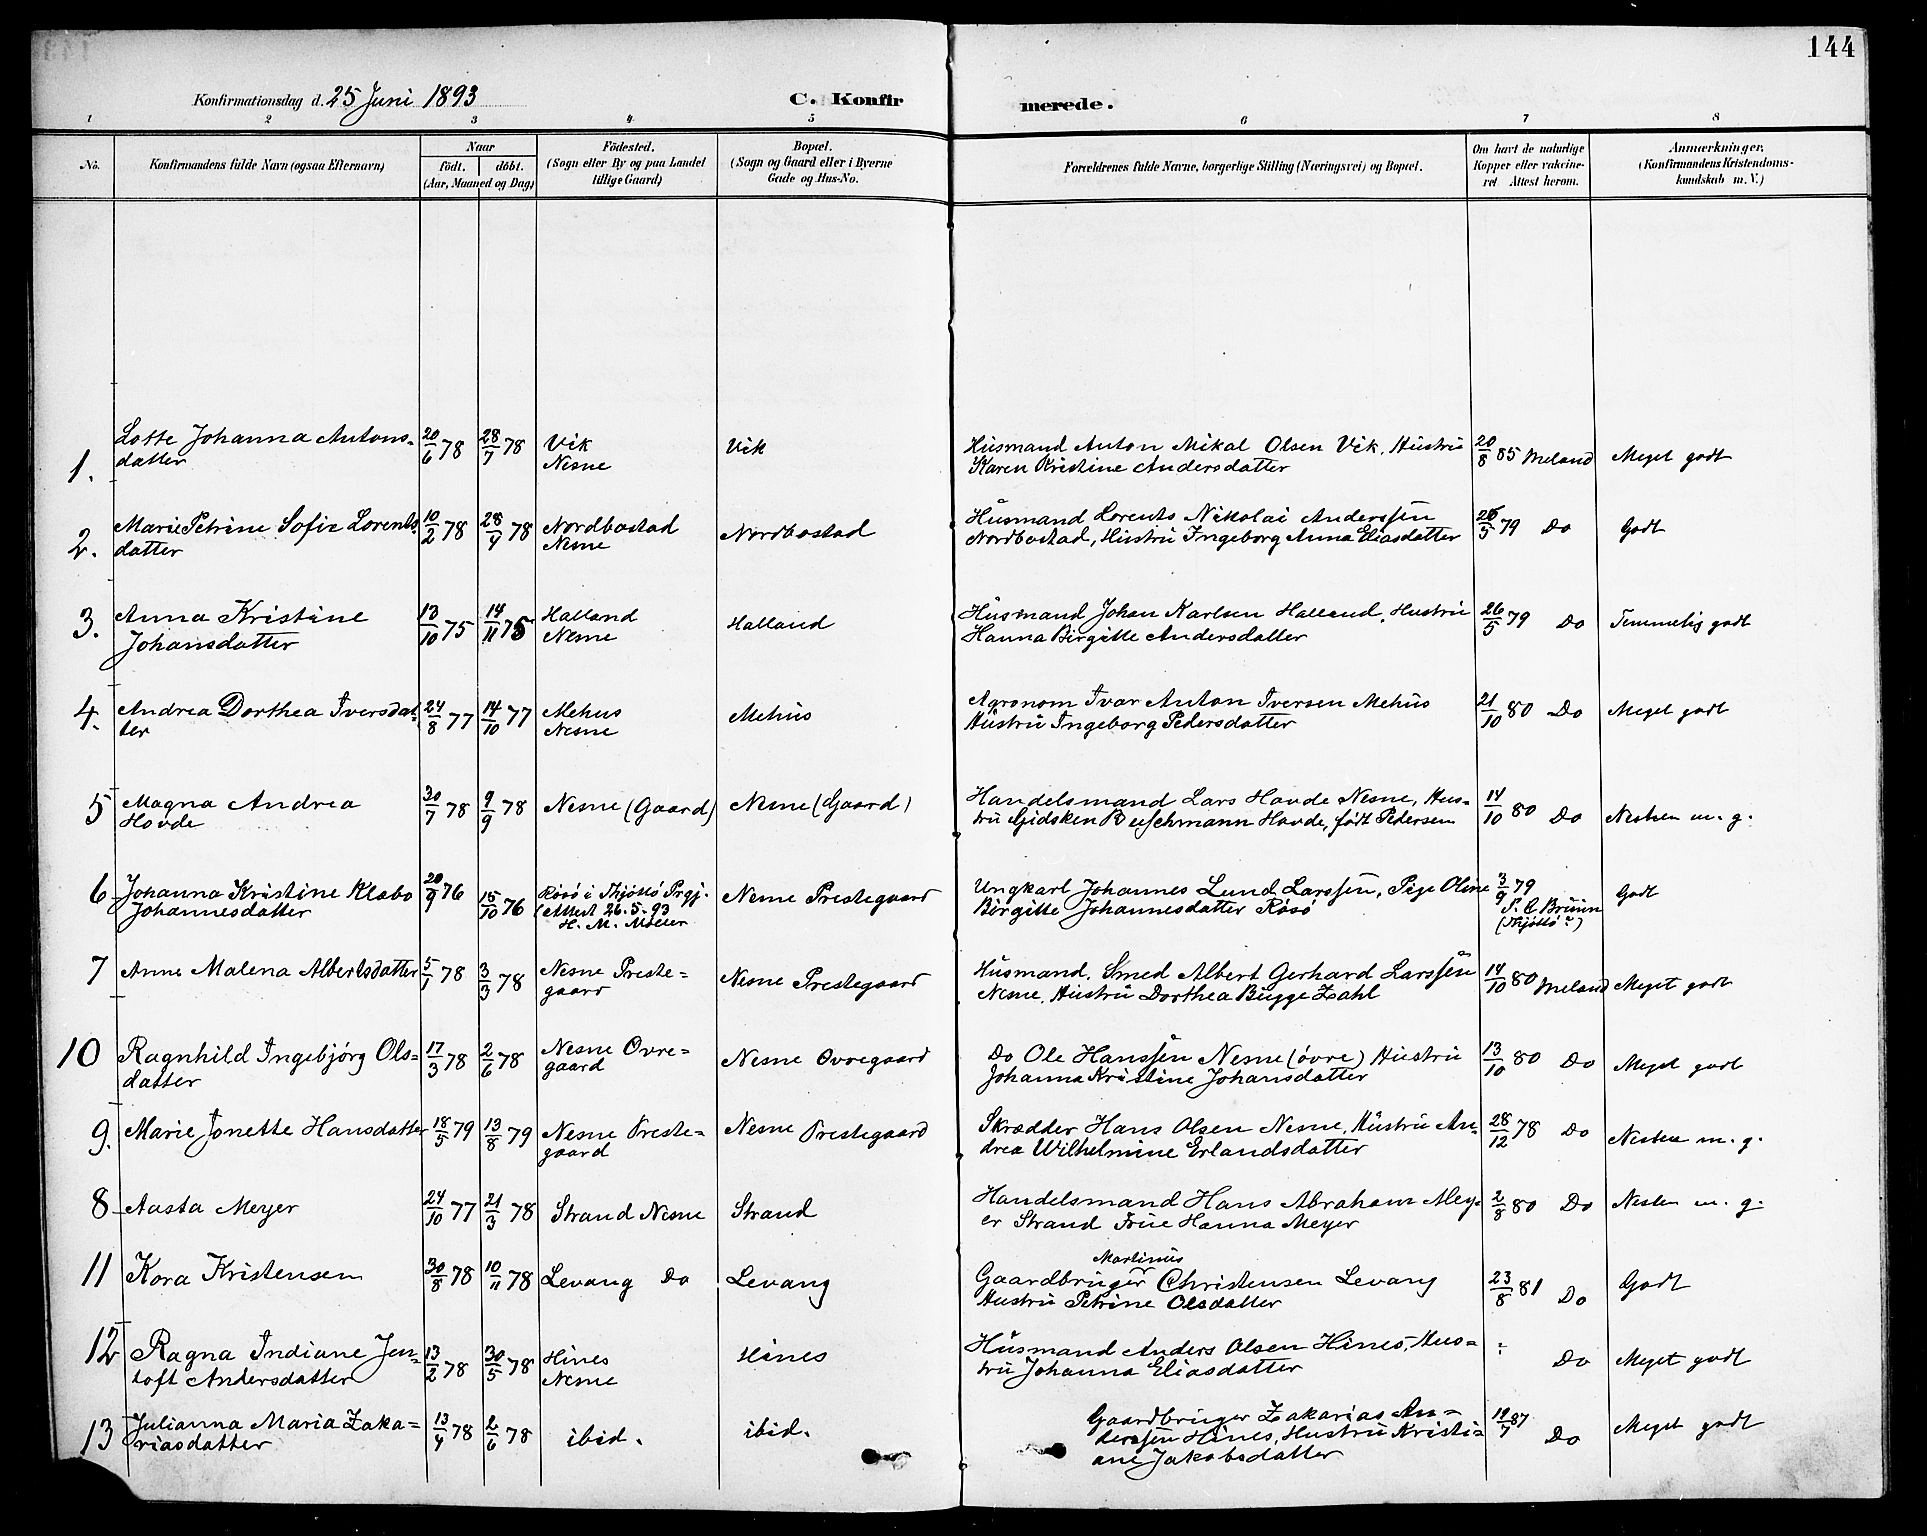 144
Konfirmationsdag d. 25 Juni 1893
C. Konfirmerede.
1 2 3 4 5 6 7 8
No. Konfirmandens fulde Navn (ogsaa Efternavn) Naar födt. döbt. (Aar, Maaned og Dag) Födested. (Sogn eller By og paa Landet tillige Gaard) Bopæl. (Sogn og Gaard eller i Byerne Gade og Hus-No. Forældrenes fulde Navne, borgerlige Stilling (Næringsvei) og Bopæl. Om havt de naturlige Kopper eller vakcineret Attest herom. Anmærkninger. (Konfirmandens Kristendomskundskab m. V.)
1. Lotte Johanna Antons- 20/6 78 28/7 78 Vik Vik Husmand Anton Mikal Olsen Vik, Hustru 20/8 85 Meland Meget godt
datter Nesne Karen Kristine Andersdatter
2. Marie Petrine Sofie Lorents- 10/2 78 28/4 78 Nordbostad Nordbostad Husmand Lorents Nikolai Anderssen 26/5 79 Do Godt
datter Nesne Nordbostad, Hustru Ingeborg Anna Eliasdatter
3. Anna Kristine 13/10 75 14/11 75 Halland Halland Husmand Johan Karlsen Halland, Hustru 26/5 79 Do Temmelig godt
Johansdatter Nesne Hanna Birgitte Andersdatter
4. Andrea Dorthea Iversdat- 24/8 77 14/10 77 Mehus Mehus Agronom Ivar Anton Iversen Mehus 21/10 80 Do Meget godt
ter Nesne Hustru Ingeborg Pedersdatter
5 Magna Andrea 30/7 78 9/9 78 Nesne (Gaard) Nesne (Gaard) Handelsmand Lars Hovde Nesne, Hus- 14/10 80 Do Nesten m. g.
Hovde tru Gidsken Hovde, født Pedersen
6 Johanna Kristine Klæbo 20/9 76 15/10 76 Rösö i Thjöttö Prgj. Nesne Prestegaard Ungkarl Johannes Lund Larssen, Pige Oline 3/9 79 Godt
Johannesdatter (Attest 26.5.93 Birgitte Johannesdatter Rösö P. C Bruun
H. M. Möller (Thjöttö?)
7 Anne Malena Albertsdatter 5/1 78 3/3 78 Nesne Preste- Nesne Prestegaard Husmand, Smed Albert Gerhard Larssen 14/10 80 Meland Meget godt
gaard Nesne, Hustru Dorthea Bugge Zahl
10 Ragnhild Ingebjörg Ols- 17/3 78 2/6 78 Nesne Ovre- Nesne Ovregaard Do Ole Hanssen Nesne (övre) Hustru 13/10 80 Do Meget godt
datter gaard Johanna Kristine Johansdatter
9. Marie Jonette Hansdatter 18/5 79 13/8 79 Nesne Preste- Nesne Prestegaard Skrædder Hans Olsen Nesne, Hustru An- 28/12 78 Do Nesten m. g.
gaard drea Wilhelmine Erlandsdatter
8 Aasta Meyer 24/10 77 21/3 78 Strand Nesne Strand Handelsmand Hans Abraham Mey- 2/8 80 Do Nesten m. g.
er Strand Frue Hanna Meyer
Martinus
11 Kora Kristensen 30/8 78 10/11 78 Levang Do Levang Gaardbruger Christensen Levang 23/8 81 Do Godt
Hustru Petrine Olsdatter
12 Ragna Indiane Jen- 13/2 78 30/5 78 Hines Hines Husmand Anders Olsen Hines, Hus- Do Meget godt
toft Andersdatter Nesne tru Johanna Eliasdatter
13 Julianna Maria Zaka- 13/4 78 2/6 78 ibid. ibid. Gaardbruger Zakarias An- 19/7 87 Do Meget godt
riasdatter derssen Hines, Hustru Kristi-
ane Jakobsdatter